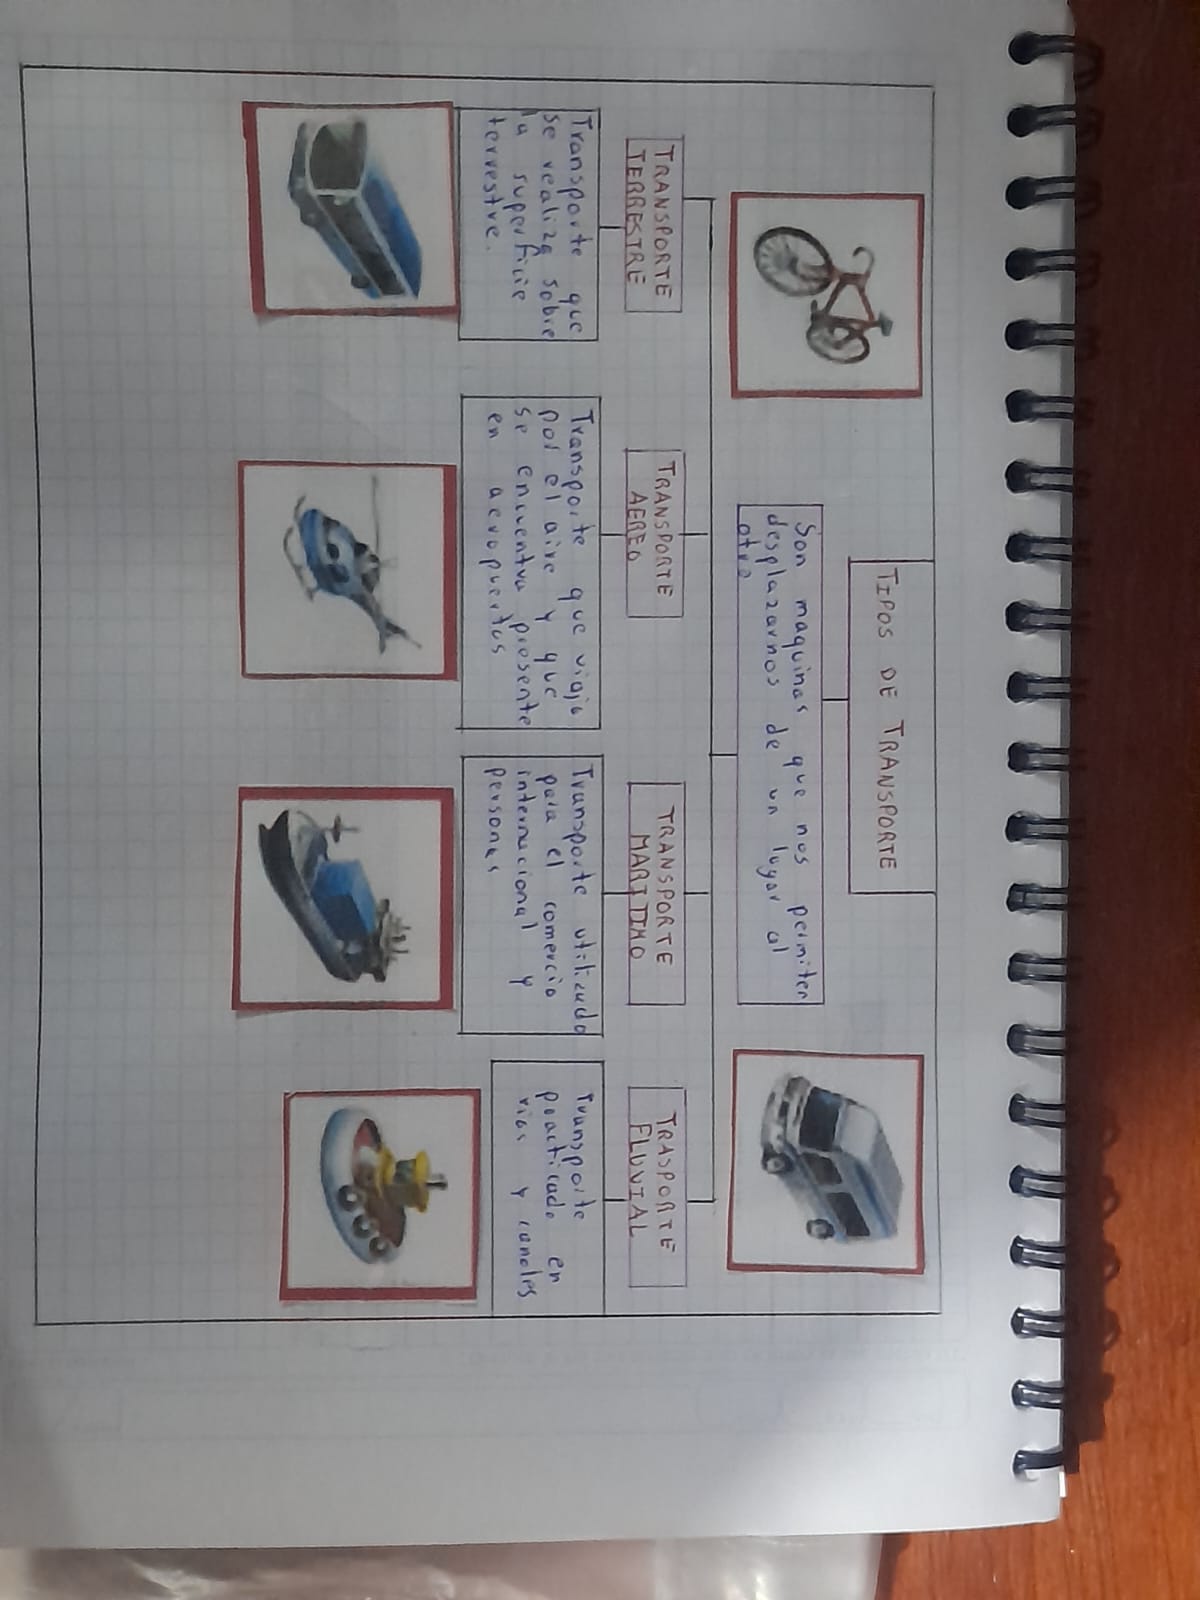 TIPOS DE TRANSPORTE
Son maquinas que nos permiten
desplazarnos de un lugar al
otro
TRANSPORTE
TERRESTRE
Transporte que
se realiza sobre
la superficie
terrestre.
TRANSPORTE
AEREO
Transporte que viaja
por el aire y que
se encuentra presente
en aeropuertos
TRANSPORTE
MARITIMO
Transporte utilizado
para el comercio
internacional y
personas
TRASPORTE
FLUVIAL
Transporte
practicado en
rios y canales